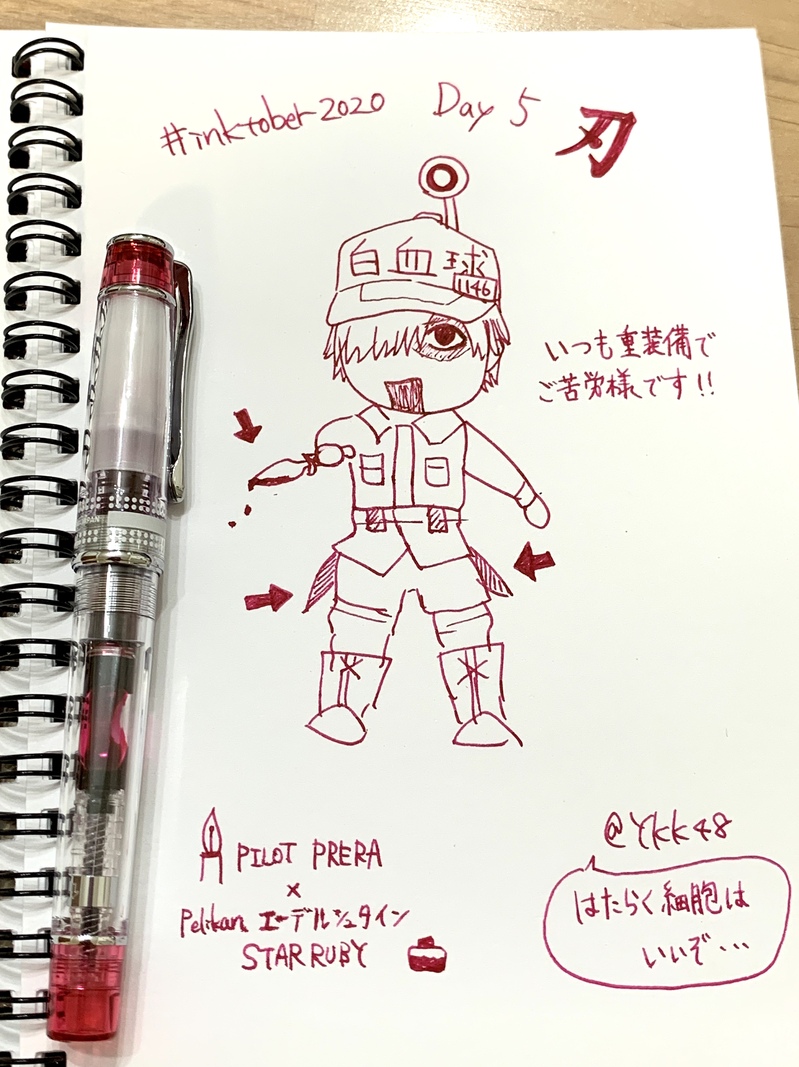 #inktober2020 Day 5 刃
白血球
1146
いつも重装備で
ご苦労様です!!
JAPAN
PILOT PRERA
×
Pelikan エーデルシュタイン
STAR RUBY
@YKK48
はたらく細胞は
いいぞ・・・